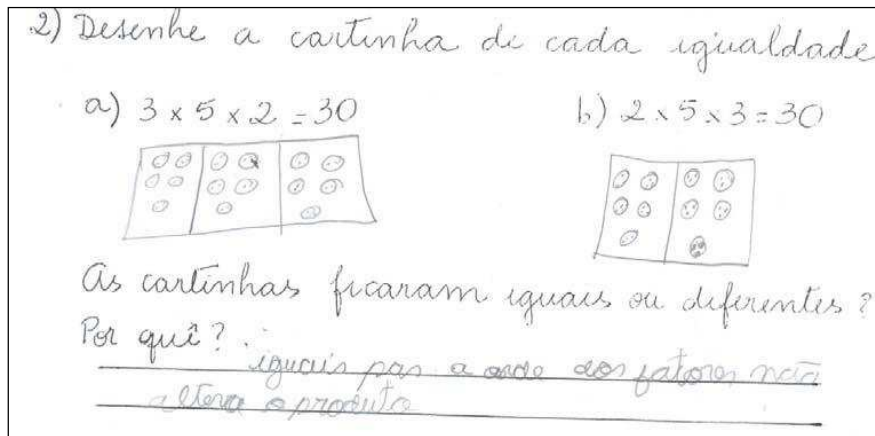 2) Desenhe a cartinha de cada igualdade
a) 3 x 5 x 2 = 30 b) 2 x 5 x 3 = 30
As cartinhas ficaram iguais ou diferentes?
Por quê?
iguais pas a orde dos fatores não
altera o produto